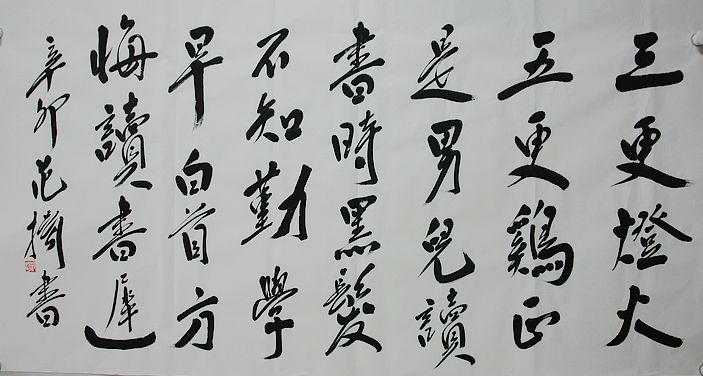 三更燈火
五更鷄正
是男兒讀
書時黑髮
不知勤學
早白首方
悔讀書遲
辛卯范書